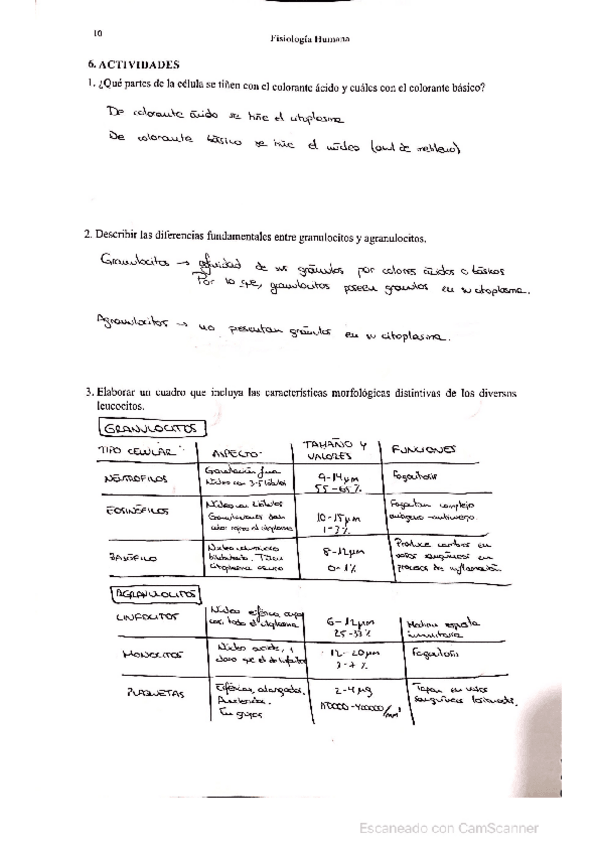 10
Fisiología Humana
6. ACTIVIDADES
1. ¿Qué partes de la célula se tiñen con el colorante ácido y cuáles con el colorante básico?
De colorante ácido se tiñe el citoplasma
De colorante básico se tiñe el núcleo (azul de metileno)
2. Describir las diferencias fundamentales entre granulocitos y agranulocitos.
Granulocitos → afinidad de sus gránulos por colores ácidos o básicos
Por lo que, granulocitos poseen granulos en su citoplasma.
Agranulocitos → no presentan gránulos en su citoplasma.
3. Elaborar un cuadro que incluya las características morfológicas distintivas de los diversos
leucocitos.
GRANULOCITOS
TIPO CELULAR ASPECTO TAMAÑO Y VALORES FUNCIONES
NEUTRÓFILOS Granulación fina Núcleo con 3-5 lóbulos 9-14µm 55-65% Fagocitosis
EOSINÓFILOS Núcleo con 2 lóbulos 10-15µm 1-3% Fagocitan complejo antígeno-anticuerpo
BASÓFILO Núcleo citoplasma oscuro 8-12µm 0-1% Produce cambios en vasos sanguíneos en procesos de inflamación
AGRANULOCITOS
LINFOCITOS Núcleo esférico ocupa casi todo el citoplasma 6-12µm 25-33%
MONOCITOS Núcleo claro que el de linfocitos 12-20µm 3-7% Fagocitosis
PLAQUETAS Esféricas, alargadas. En grupos 2-4µg 150000-400000/mm³ Tapan en vasos sanguíneos lesionados.
Escaneado con CamScanner